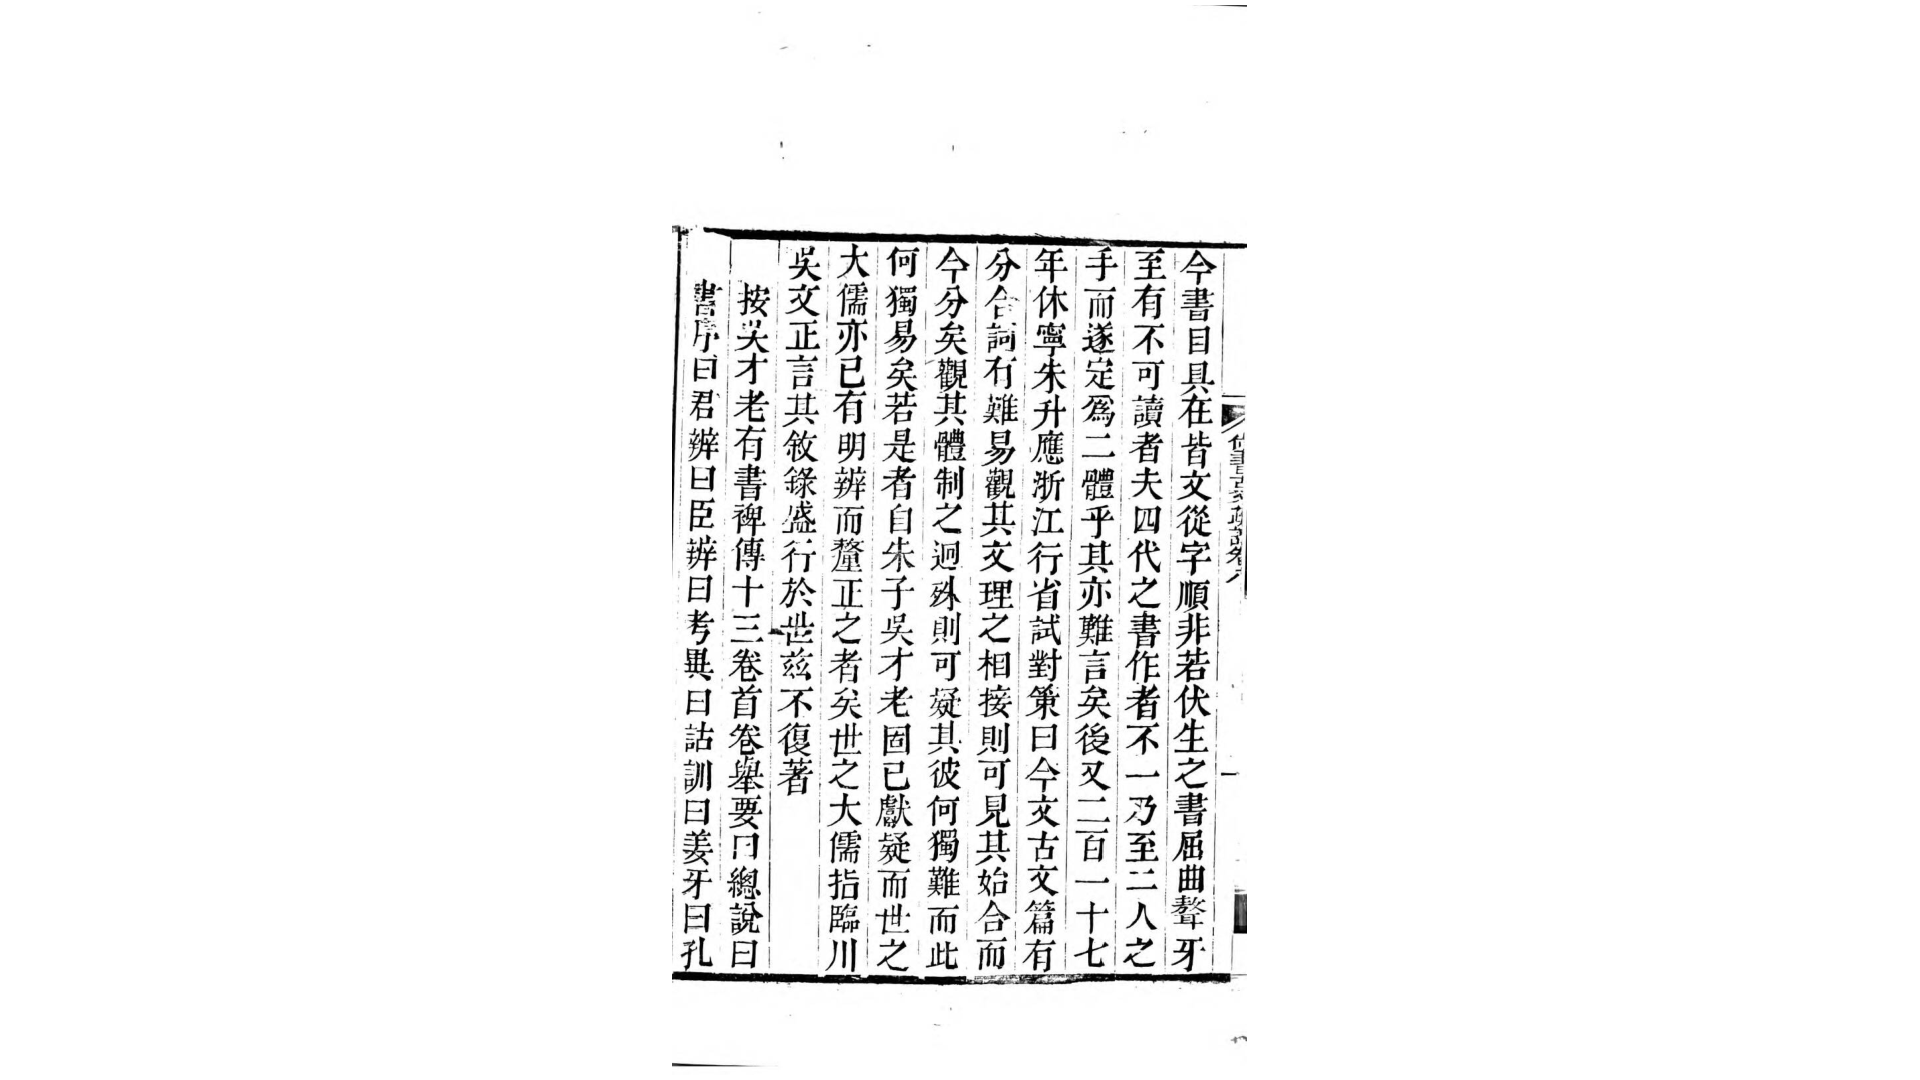 今書目具在皆文從字順非若伏生之書屈曲聱牙
至有不可讀者夫四代之書作者不一乃至二人之
手而遂定爲二體乎其亦難言矣後又二百一十七
年休寧朱升應浙江行省試對策曰今文古文篇有
分合詞有難易觀其文理之相接則可見其始合而
今分矣觀其體制之迥殊則可疑其彼何獨難而此
何獨易矣若是者自朱子吳才老固已獻疑而世之
大儒亦已有明辨而釐正之者矣世之大儒指臨川
吳文正言其敘錄盛行於世兹不復著
按吳才老有書裨傳十三卷首卷舉要曰總說曰
書序曰君辨曰臣辨曰考異曰詁訓曰差牙曰孔
尚書古文疏證卷六